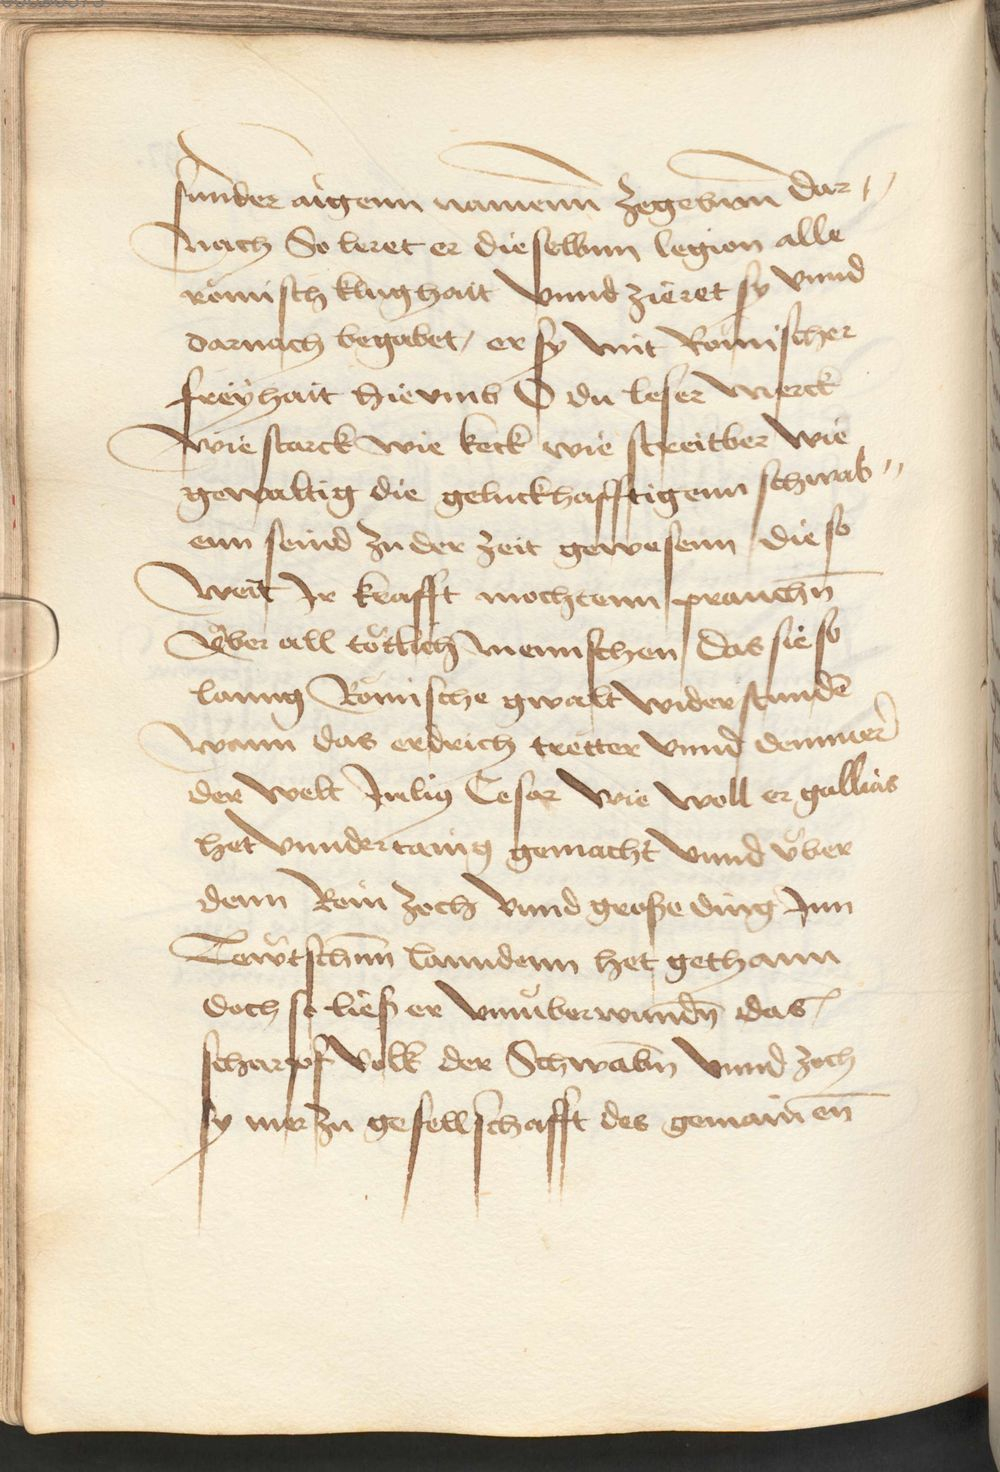 sunder aigenn namenn zegebenn dar„
nach So leret er dieselbnn legion alle
römisch klughait vnnd zieret sy vnnd
darnach begabet, er sy mit Römischer
freyhait Hievmb O du leser Merck
wie starck wie keck wie streitber wie
gewaltig die geluckhafftigenn schwab„
enn seind zu der zeit gewesenn die so
weit Ir krafft mochtenn prauchn̄
v̈ber all tötlich mennschen das sie so
lanng Römische gwalt widerstunden̄
wann das erdrich tretter vnnd demmer
der welt Julius Cesar wie woll er gallias
het vnndertanig gemacht vnnd v̈ber
denn Rein zoch vnnd große ding Inn
Tewtschnn lanndenn het gethann
doch so ließ er vnüberwundn̄ das
scharpf volk der Schwabn̄ vnnd zoch
sy mer zu gesellschafft des gemainen̄